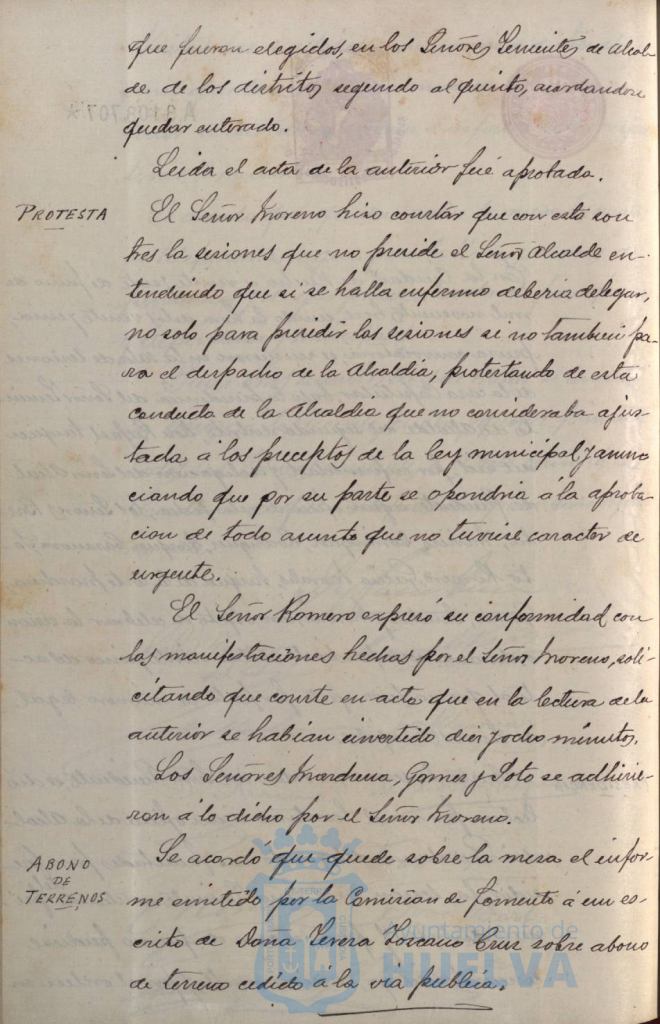 que fueron elegidos, en los Señores Tenientes de Alcal-
de de los distritos segundo al quinto, acordandose
quedar enterado.
Leida el acta de la anterior fué aprobada.
PROTESTA
El Señor Moreno hizo constar que con esta son
tres la sesiones que no preside el Señor Alcalde en-
tendiendo que si se halla enfermo deberia delegar,
no solo para presidir las sesiones si no tambien pa-
ra el despacho de la Alcaldía, protestando de esta
conducta de la Alcaldia que no consideraba ajus-
tada á los preceptos de la ley municipal y anun
ciando que por su parte se opondria á la aproba-
cion de todo asunto que no tuviese caracter de
urgente.
El Señor Romero expresó su conformidad con
las manifestaciones hechas por el Señor Moreno, soli-
citando que conste en acta que en la lectura de la
anterior se habian invertido diez y ocho minutos.
Los Señores Marchena, Gamez y Soto se adhirie-
ron á lo dicho por el Señor Moreno.
ABONO
DE
TERRENOS
Se acordó que quede sobre la mesa el infor-
me emitido por la Comision de fomento á un es-
crito de Doña Teresa Toscano Cruz sobre abono
de terreno cedido á la via publica.
Ayuntamiento de
HUELVA